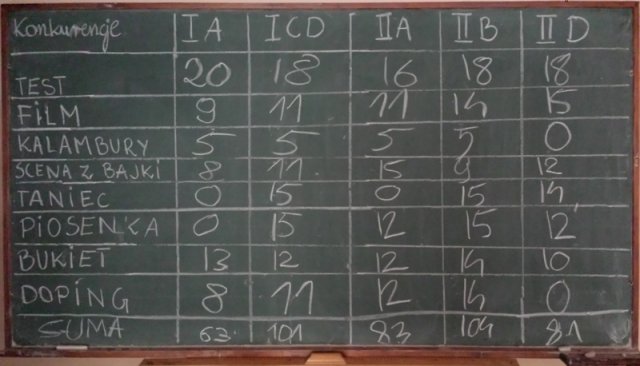 Konkurenje IA ICD IIA IIB IID
TEST 20 18 16 18 18
FILM 9 11 11 14 15
KALAMBURY 5 5 5 5 0
SCENA Z BAJKI 8 11 15 9 12
TANIEC 0 15 0 15 14
PIOSENKA 0 15 12 15 12
BUKIET 13 12 12 14 10
DOPING 8 11 12 14 0
SUMA 63 101 83 104 81